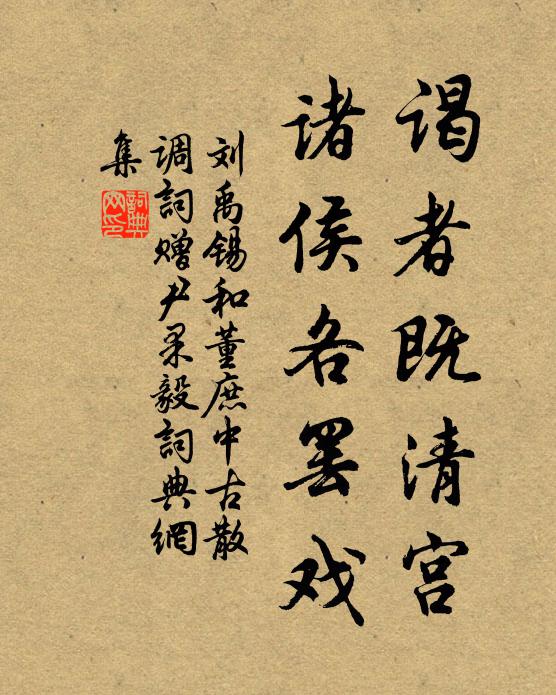 谒者既清宫
诸侯各罢戏
刘禹锡和董庶中古散
调词赠尹果毅词典網
集
詞典網印